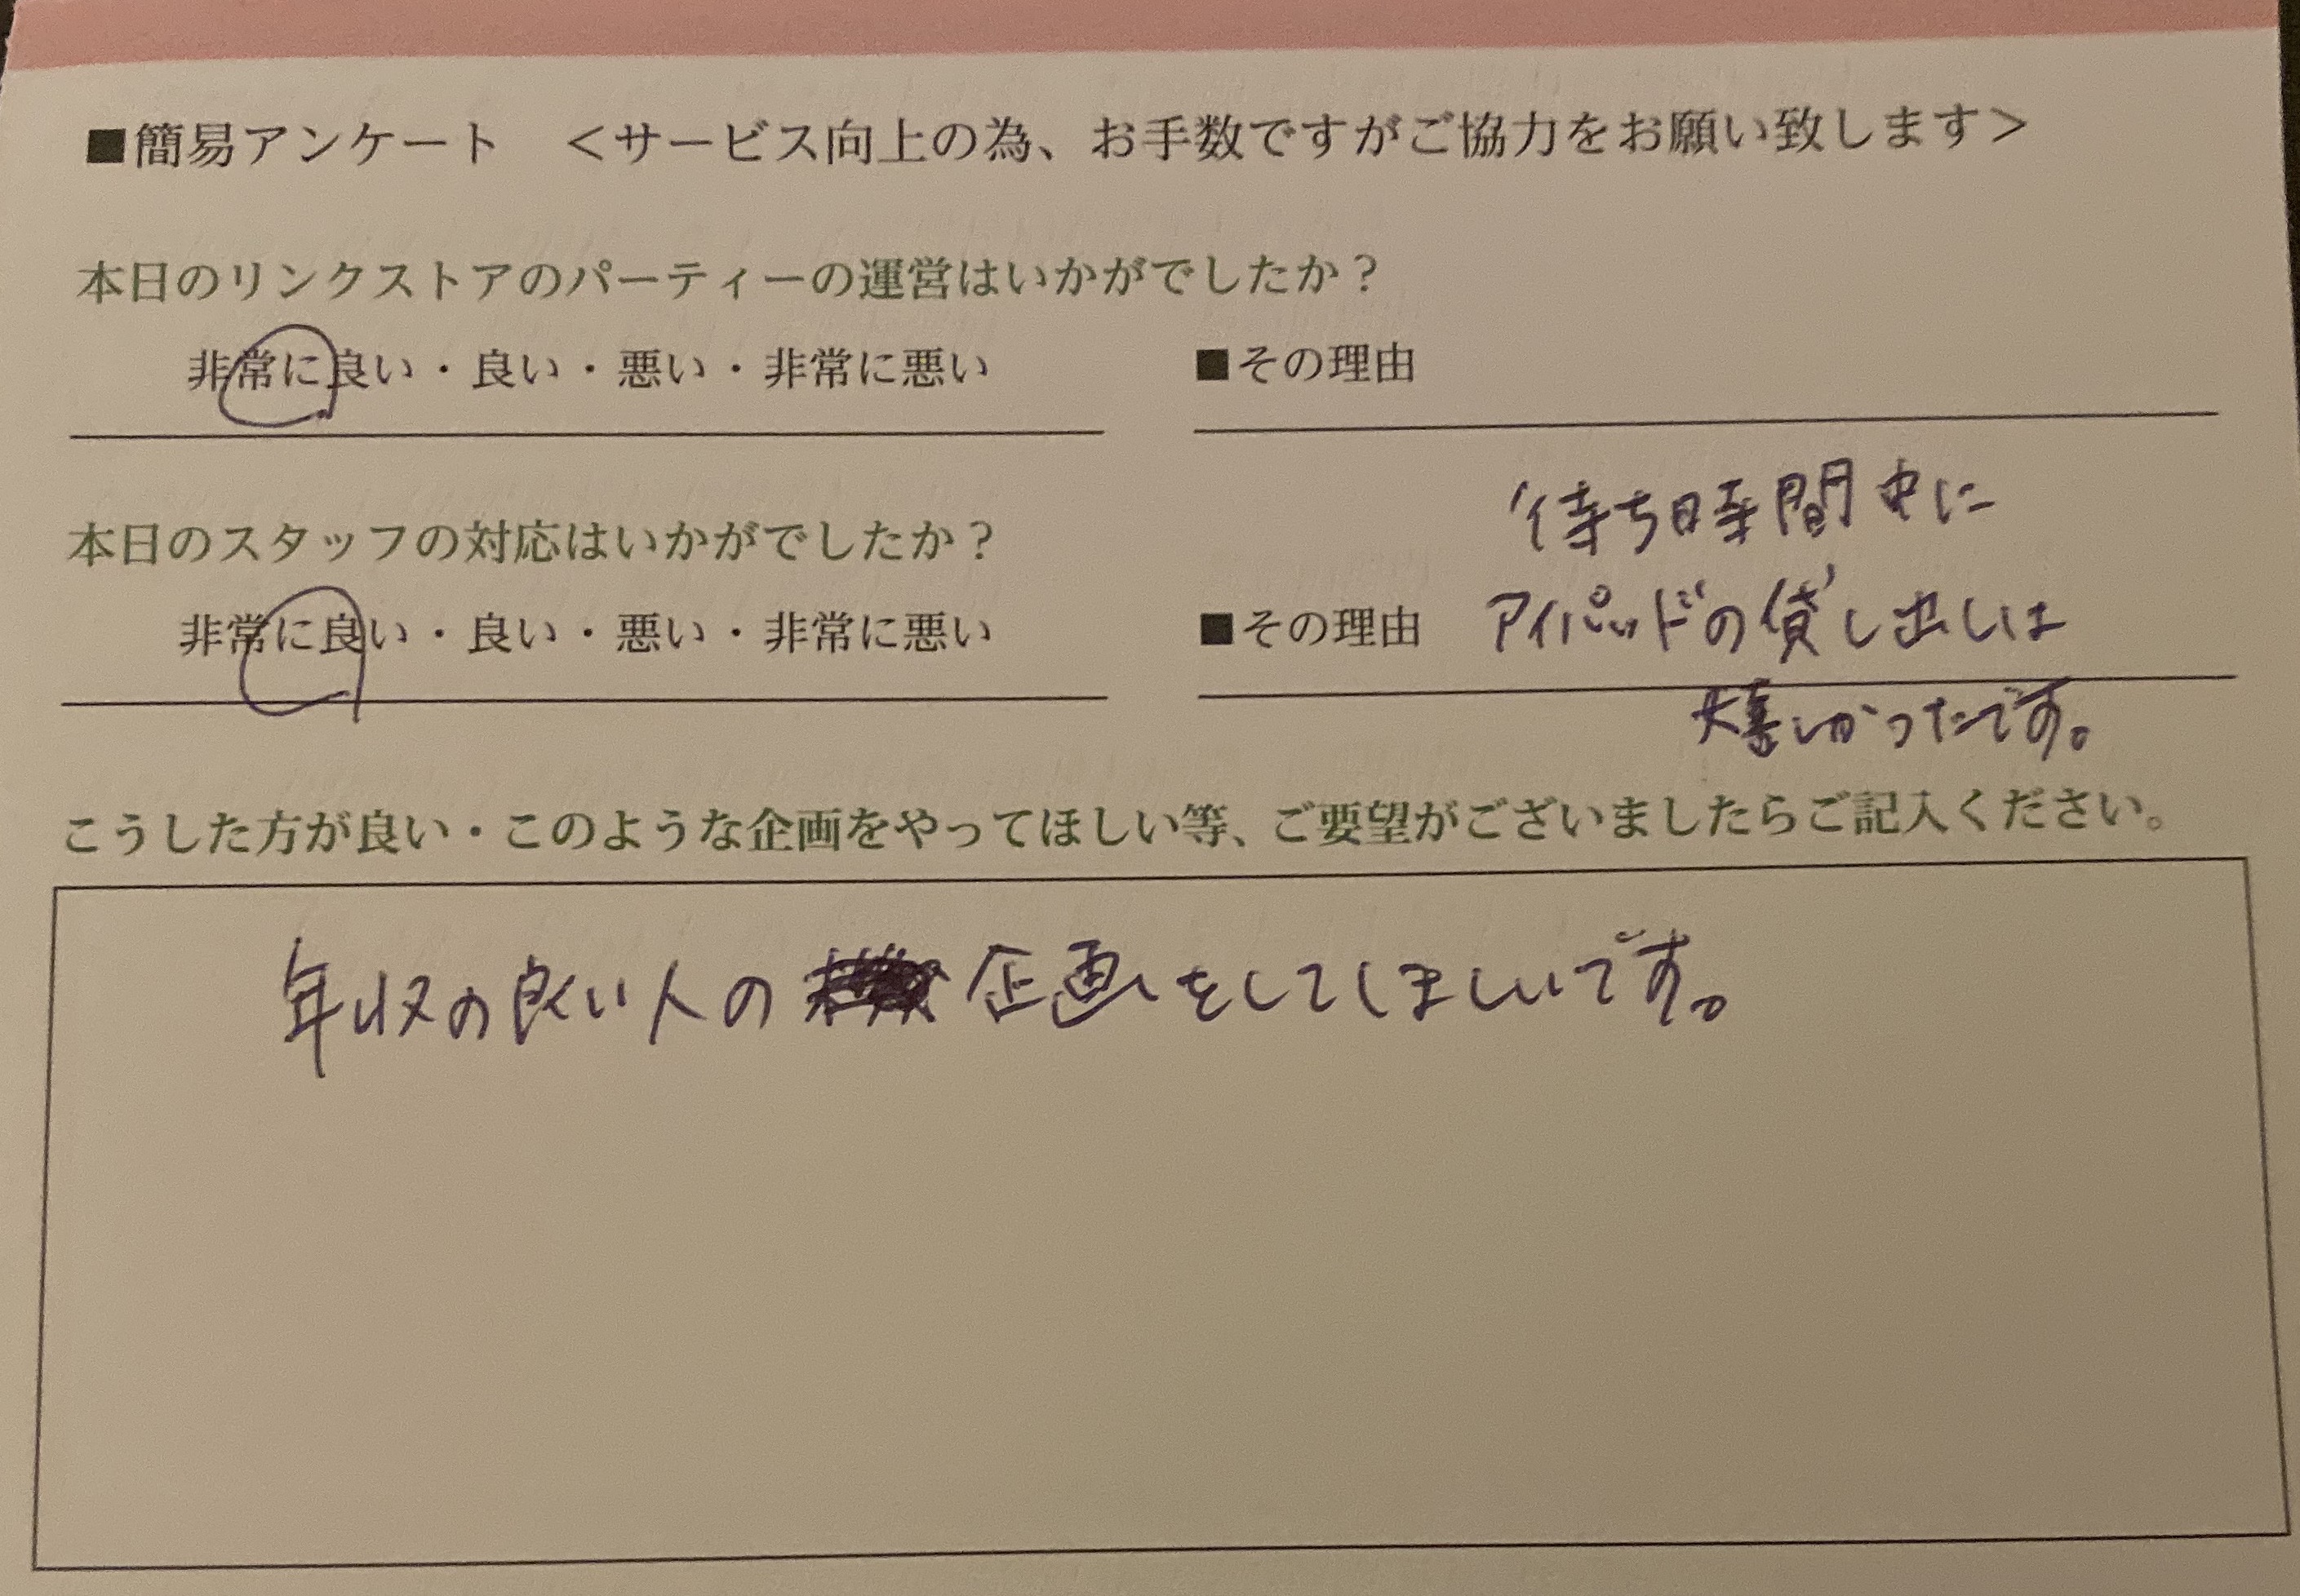 ■簡易アンケート ＜サービス向上の為、お手数ですがご協力をお願い致します＞
本日のリンクストアのパーティーの運営はいかがでしたか？
非常に良い・良い・悪い・非常に悪い ■その理由
本日のスタッフの対応はいかがでしたか？
非常に良い・良い・悪い・非常に悪い ■その理由
待ち時間中に
アイパッドの貸し出しは
嬉しかったです。
こうした方が良い・このような企画をやってほしい等、ご要望がございましたらご記入ください。
年収の良い人の企画をしてほしいです。